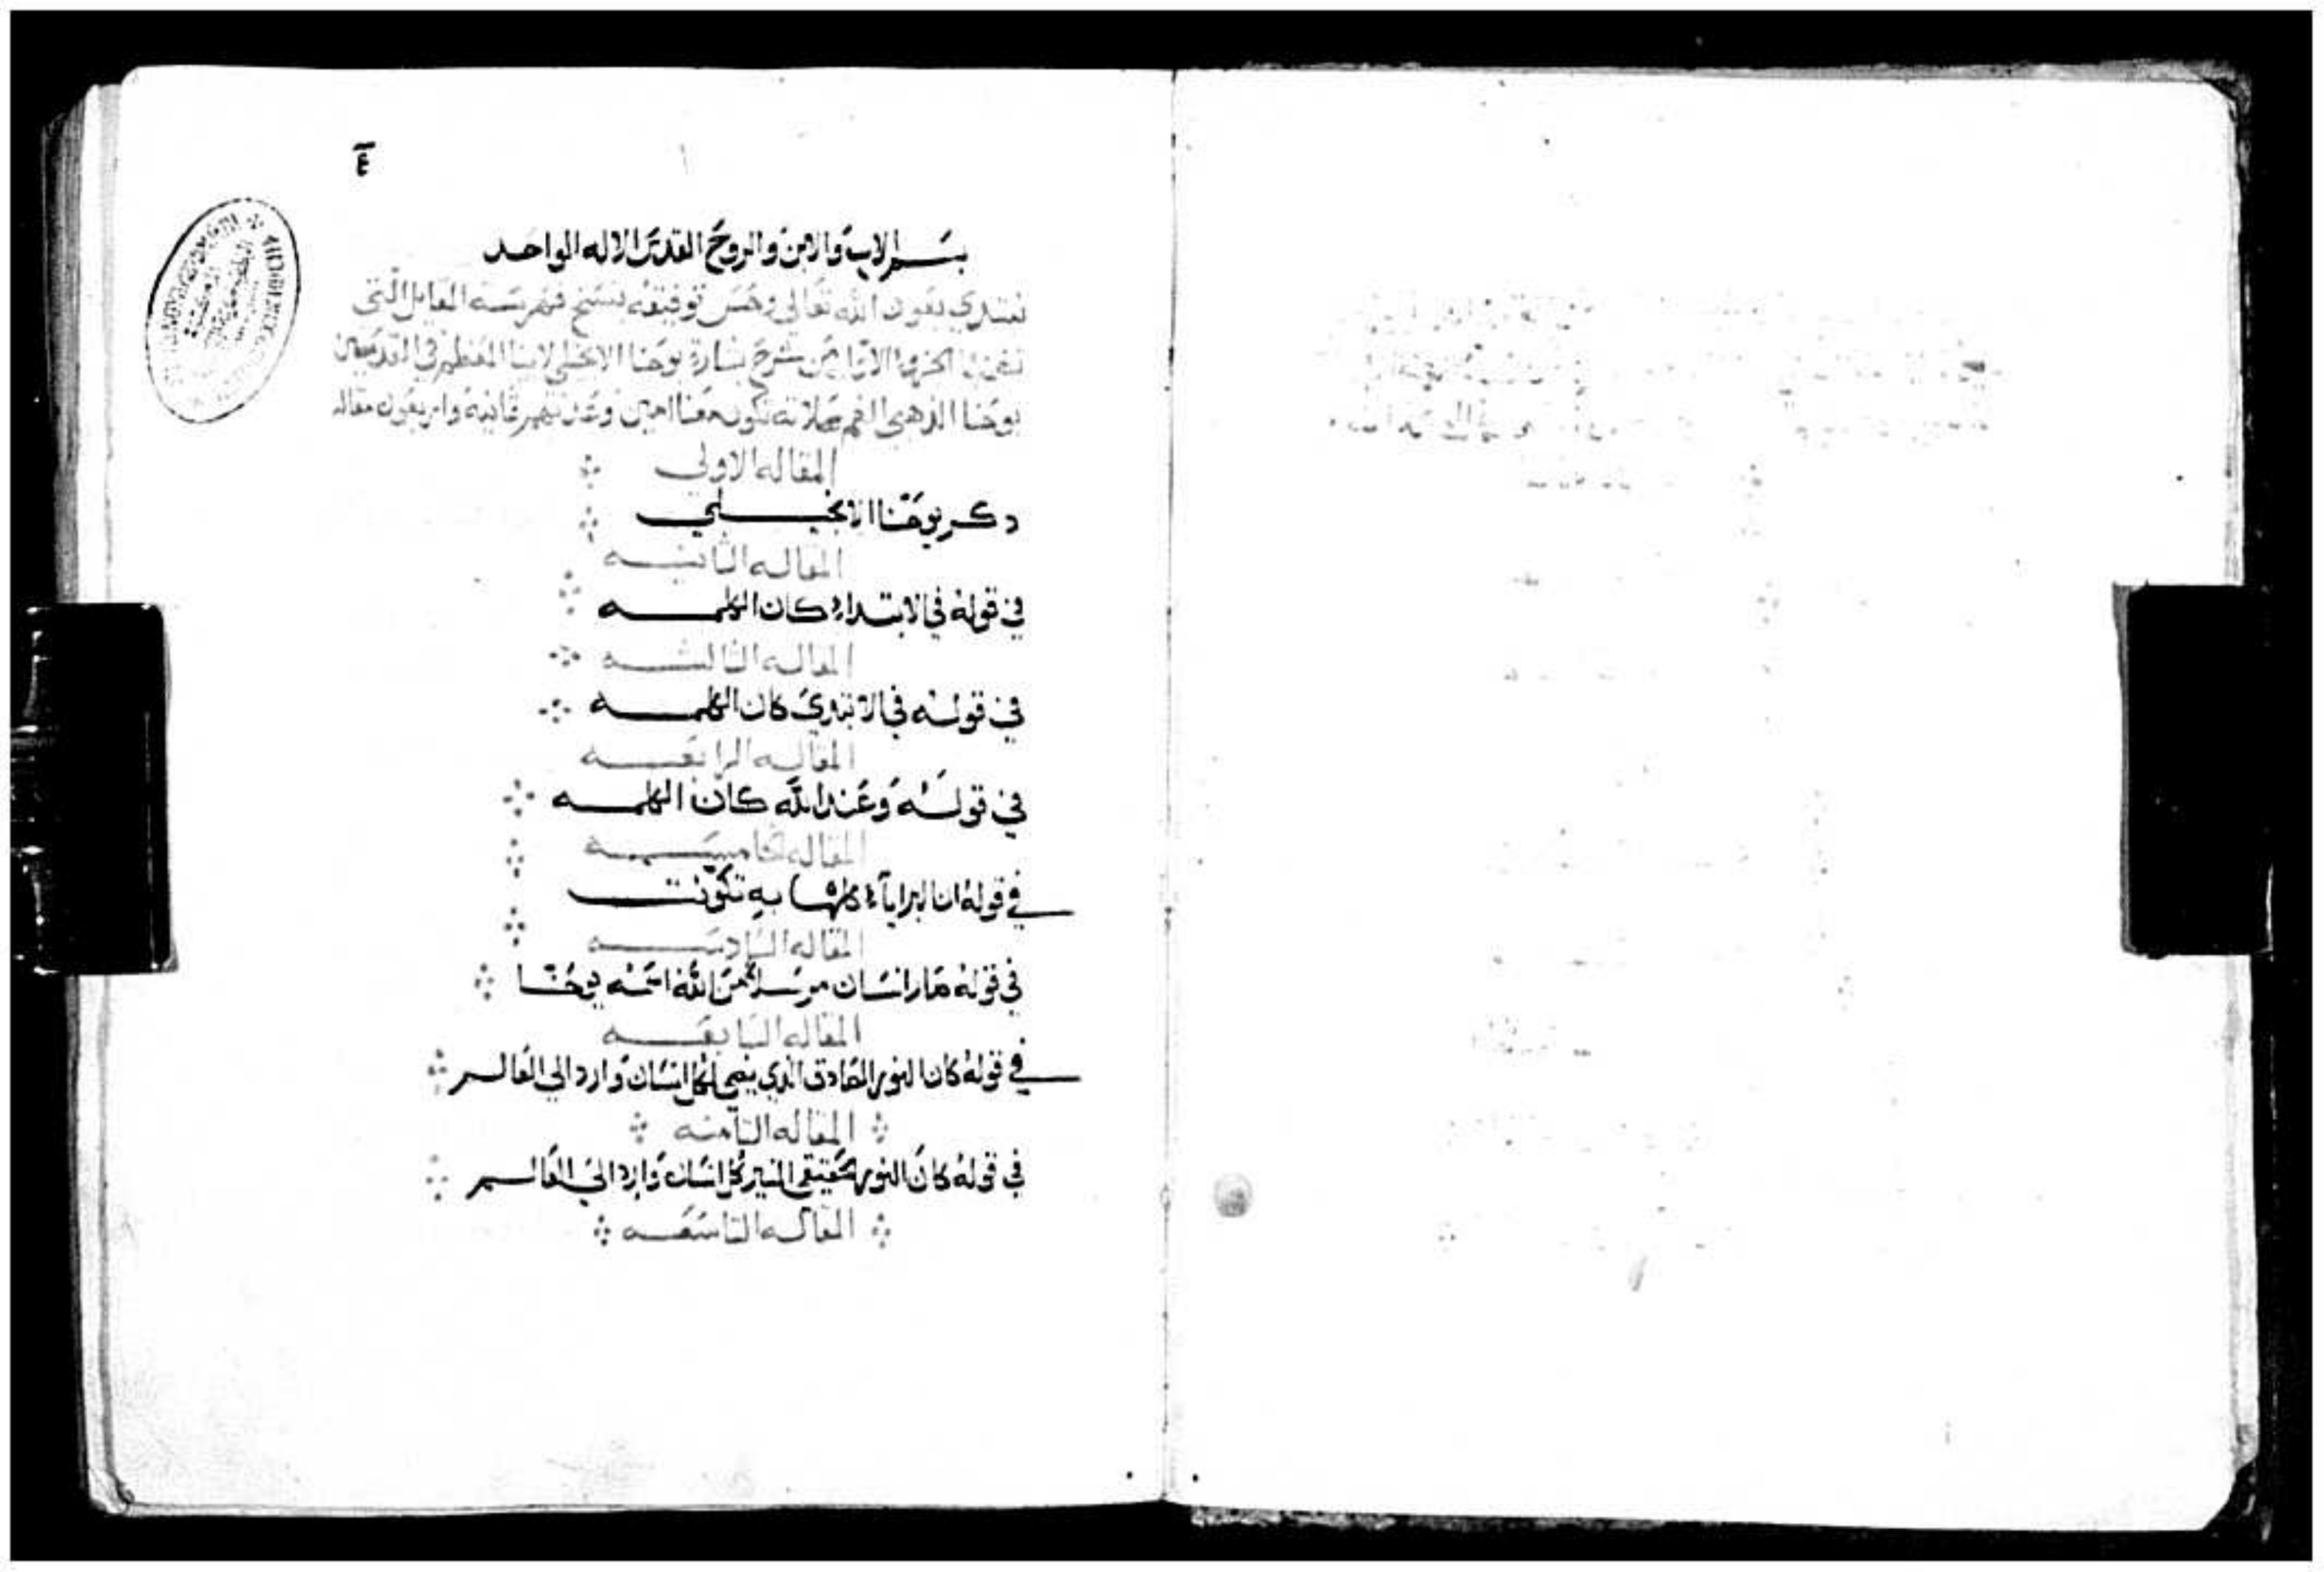 ٤
بسم الاب والابن والروح القدس الاله الواحد
نبتدي بعون الله تعالى وحسن توفيقه بنسخ فهرسة المقايل التي
الجزء الاول من شرح بشارة يوحنا الانجيلي لابينا المعظم في القديسين
يوحنا الذهبي الفم صلاته تكون معنا امين وعدتهم ثمانيه واربعون مقاله
المقاله الاولى
دكر يوحنا الانجيلي
المقاله الثانيه
في قوله في الابتداء كان الكلمه
المقاله الثالثه
في قوله في الابتدي كان الكلمه
المقاله الرابعه
في قوله وعند الله كان الكلمه
المقاله الخامسه
في قوله ان البرايا كلها به تكونت
المقاله السادسه
في قوله صار انسان مرسلا من الله اسمه يوحنا
المقاله السابعه
في قوله كان النور الصادق الذي يضي لكل انسان وارد الي العالم
المقاله الثامنه
في قوله كان النور الحقيقي المنير كل انسان وارد الي العالم
المقاله التاسعه